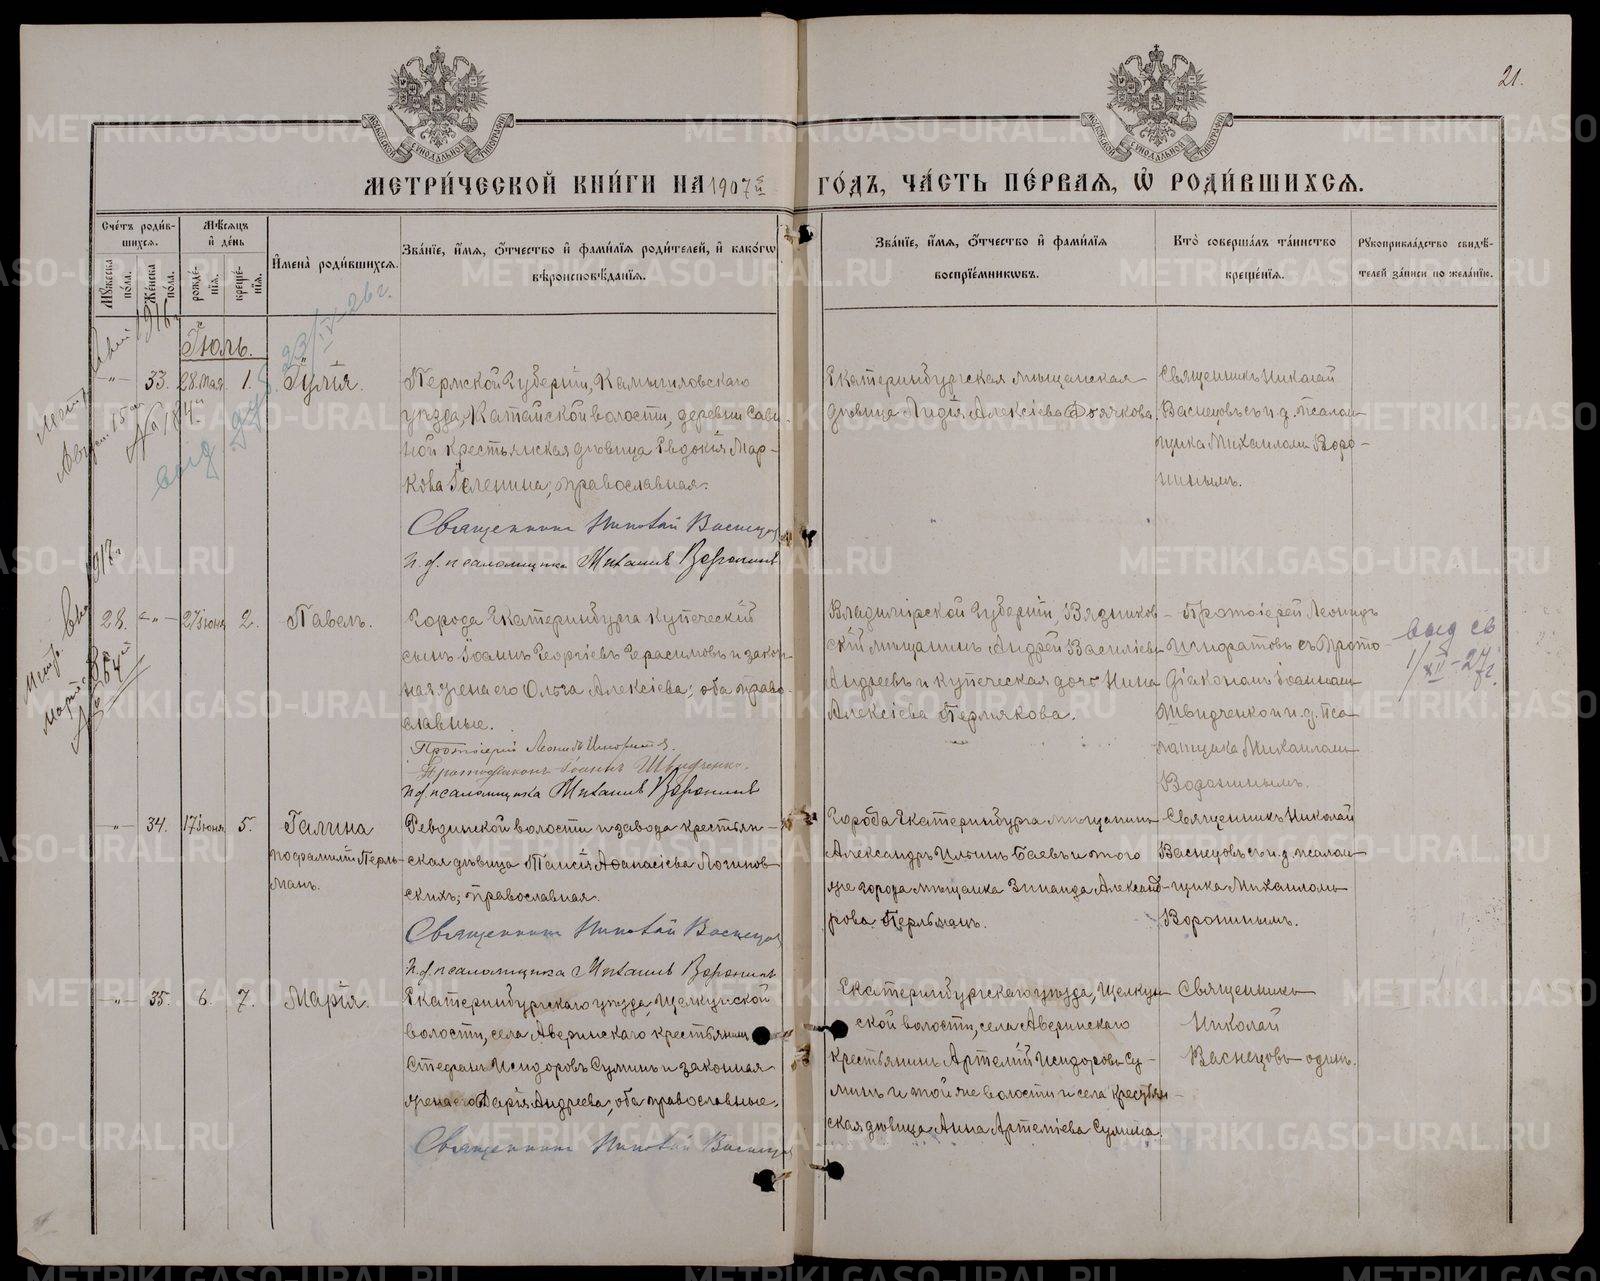 21.
МОСКОВСКОЙ СѴНОДАЛЬНОЙ ТИПОГРАФІИ
МОСКОВСКОЙ СѴНОДАЛЬНОЙ ТИПОГРАФІИ
МЕТРИ́ЧЕСКОЙ КНИ́ГИ НА 1907й ГО́ДЪ, ЧА́СТЬ ПЕ́РВАЯ, Ѡ РОДИ́ВШИХСЯ.
Сче́тъ роди́в-
шихся.
Мꙋжеска по́ла.
Женска по́ла.
Мѣсяцъ
и́ день
рожде́-
нія.
креще́-
нія.
И҆мена̀ роди́вшихся.
Зва́нїе, и҆́мя, ѻ҆́тчество и҆ фами́лїя роди́телей, и҆ како́гѡ
вѣроисповѣ́данїя.
Зва́нїе, и҆́мя, ѻ҆́тчество и҆ фами́лїя
воспрїе́мникѡвъ.
Кто̀ соверша́лъ та́инство
креще́нїя.
Рꙋкоприкла́дство свидѣ́-
телей за́писи по жела́нїю.
1916
23/IV-26 г.
Іюль.
-"- 33. 28 мая 1. Іулія.
Пермской Губерніи, Камышловскаго
уѣзда, Катайской волости, деревни Сави-
ной крестьянская дѣвица Евдокія Мар-
кова Геленина; православная.
Священникъ Николай Васнецовъ
И.д. псаломщика Михаилъ Воронинъ
Екатеринбургская мѣщанская
дѣвица Лидія Алексіева
Священникъ Николай
Васнецовъ съ и.д. псалом-
щика Михаиломъ Воро-
нинымъ.
№ 184й
выд
28. -"- 27 Іюня 2. Павелъ.
Города Екатеринбурга купеческій
сынъ Іоаннъ Георгіевъ Герасимовъ и закон-
ная жена его Ольга Алексіева; оба право-
славные.
Протоіерей Леонидъ Игноратовъ.
Протодіаконъ Іоаннъ Швидченко.
И.д. псаломщика Михаилъ Воронинъ
Владимірской Губерніи, Вязников-
скій мѣщанинъ Андрей Василіевъ
Андреевъ и купеческая дочь Нина
Алексіева Пермякова.
Протоіерей Леонидъ
Игноратовъ съ Прото-
діакономъ Іоанномъ
Швидченко и и.д. пса-
ломщика Михаиломъ
Воронинымъ.
выд св
1/XII-27 г.
-"- 34. 17 Іюня 5. Галина
по фамиліи Перль-
манъ.
Ревдинской волости и завода крестьян-
ская дѣвица Таисія Афанасіева Логинов-
скихъ; православная.
Священникъ Николай Васнецовъ
И.д. псаломщика Михаилъ Воронинъ
Города Екатеринбурга мѣщанинъ
Александръ Баевъ и того
же города мѣщанка Зинаида Александ-
рова Перльманъ.
Священникъ Николай
Васнецовъ съ и.д. псалом-
щика Михаиломъ
Воронинымъ.
-"- 35. 6. 7. Марія.
Екатеринбургскаго уѣзда, Щелкунской
волости, села Аверинскаго крестьянинъ
Стефанъ Исидоровъ Суминъ и законная
жена его Дарія Андреева; оба православные.
Священникъ Николай Васнецовъ
Екатеринбургскаго уѣзда, Щелкун-
ской волости, села Аверинскаго
крестьянинъ Артемій Исидоровъ Су-
минъ и той же волости и села крестьян-
ская дѣвица Анна Артеміева Сумина.
Священникъ
Николай
Васнецовъ одинъ.
METRIKI.GASO-URAL.RU